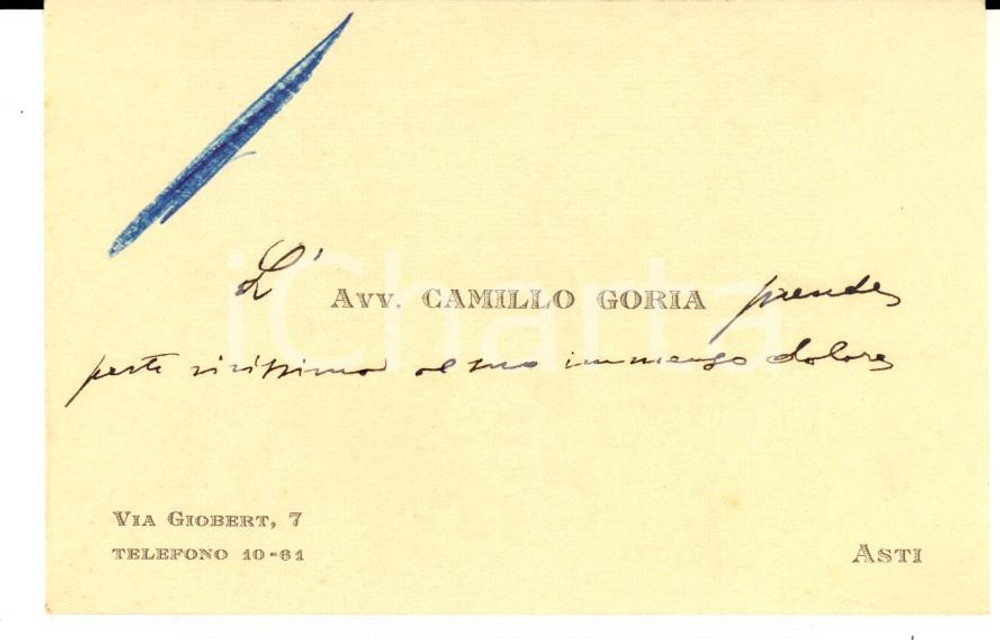 L' Avv. CAMILLO GORIA prende
parte vivissima al suo immenso dolore
VIA GIOBERT, 7
TELEFONO 10-61
ASTI
iCharta